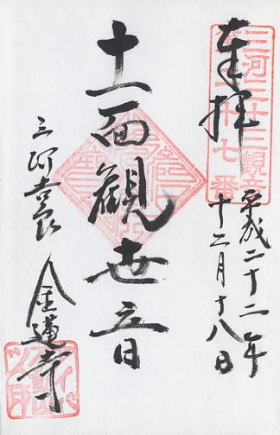 奉拝
三河三十三観音
第二十七番
平成二十二年
十二月十八日
十一面観世音
三河吉良
金蓮寺